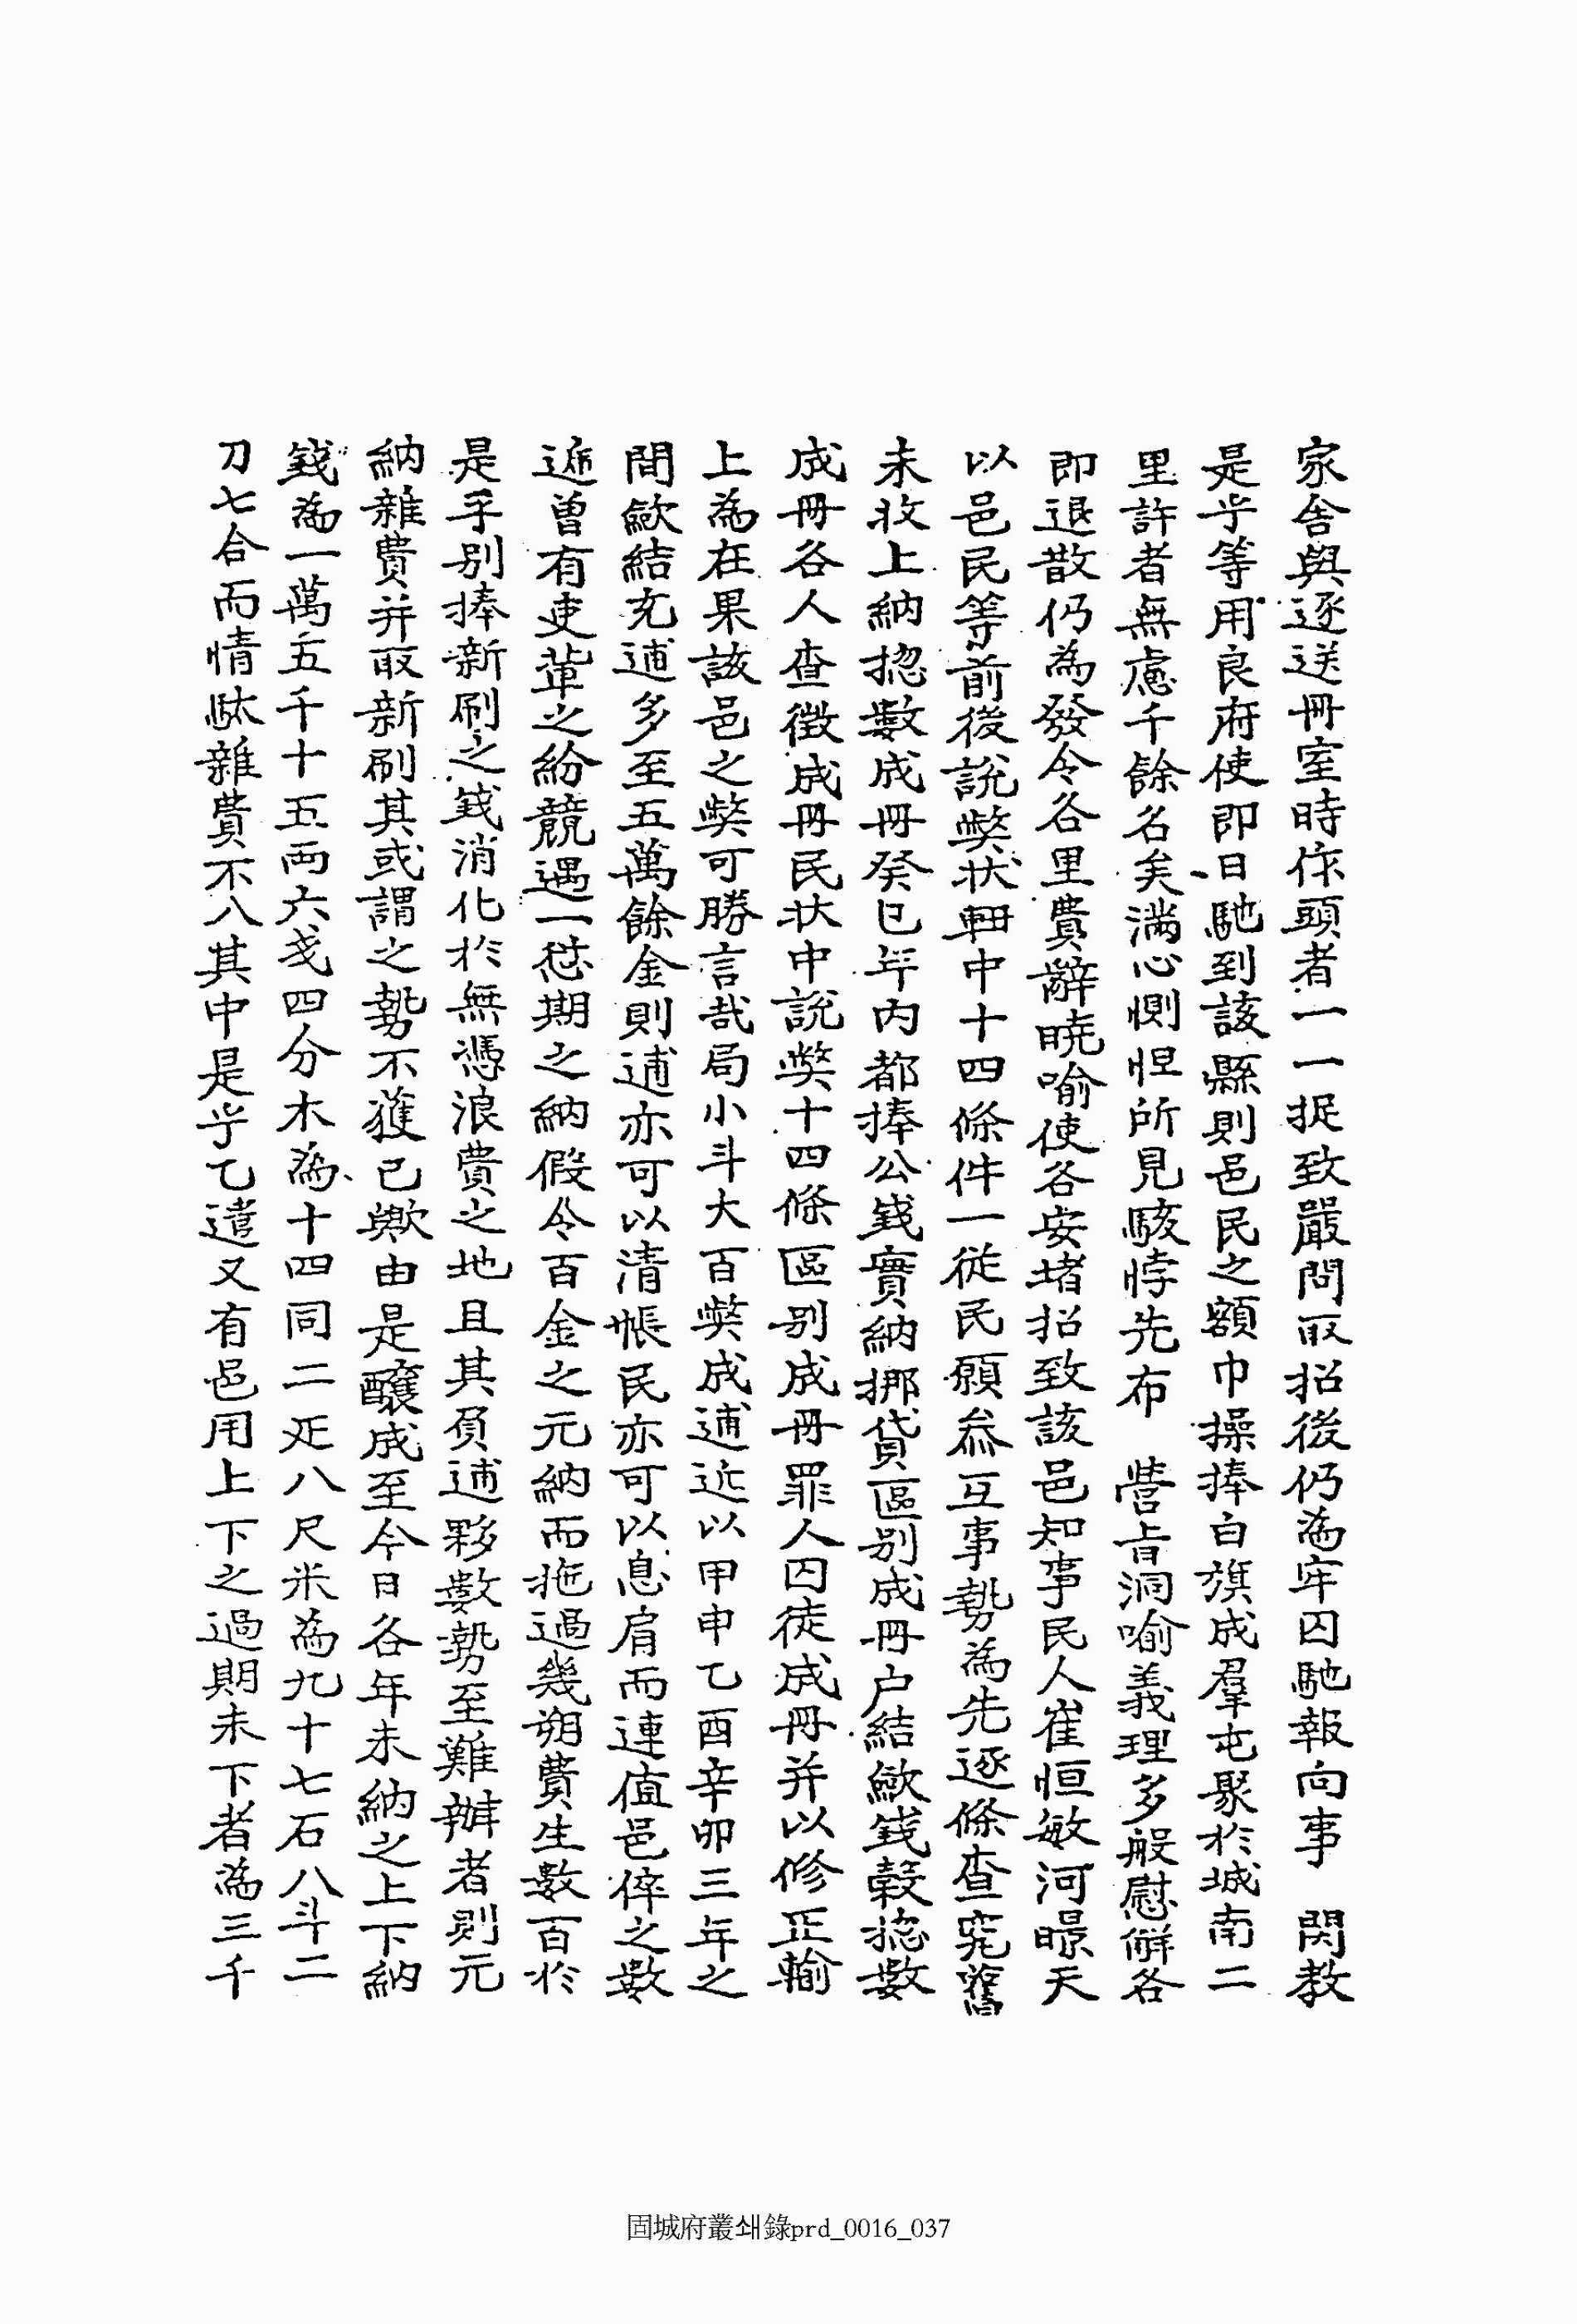 家舍與逐送冊室時作頭者一一捉致嚴問取招後仍爲牢囚馳報向事 関教
是乎等用良府使即日馳到該縣則邑民之額巾操捧白旗成羣屯聚於城南二
里許者無慮千餘名矣滿心惻怛所見駭悖先布 營旨洞喻義理多般慰解各
即退散仍為發令各里費辭曉喻使各安堵招致該邑知事民人崔恒敏河曔天
以邑民等前後說獘狀軸中十四條件一從民願叅互事勢為先逐條查究舊
未收上納摠數成冊癸巳年內都捧公錢實納挪貸區別成冊户結歛錢穀摠數
成冊各人查徵成冊民狀中說獘十四條區別成冊罪人囚徒成冊并以修正輸
上為在果該邑之獘可勝言哉局小斗大百獘成逋近以甲申乙酉辛卯三年之
間歛結充逋多至五萬餘金則逋亦可以清帳民亦可以息肩而連値邑倅之數
遞曾有吏軰之紛競遇一愆期之納假令百金之元納而拖過幾朔費生數百於
是乎別捧新刷之錢消化於無憑浪費之地且其負逋夥數勢至難辦者則元
納雜費并取新刷其或謂之勢不獲已歟由是釀成至今日各年未納之上下納
錢為一萬五千十五兩六戔四分木為十四同二疋八尺米為九十七石八斗二
刀七合而情駄雜費不入其中是乎乙遣又有邑用上下之過期未下者為三千
固城府叢쇄錄prd_0016_037